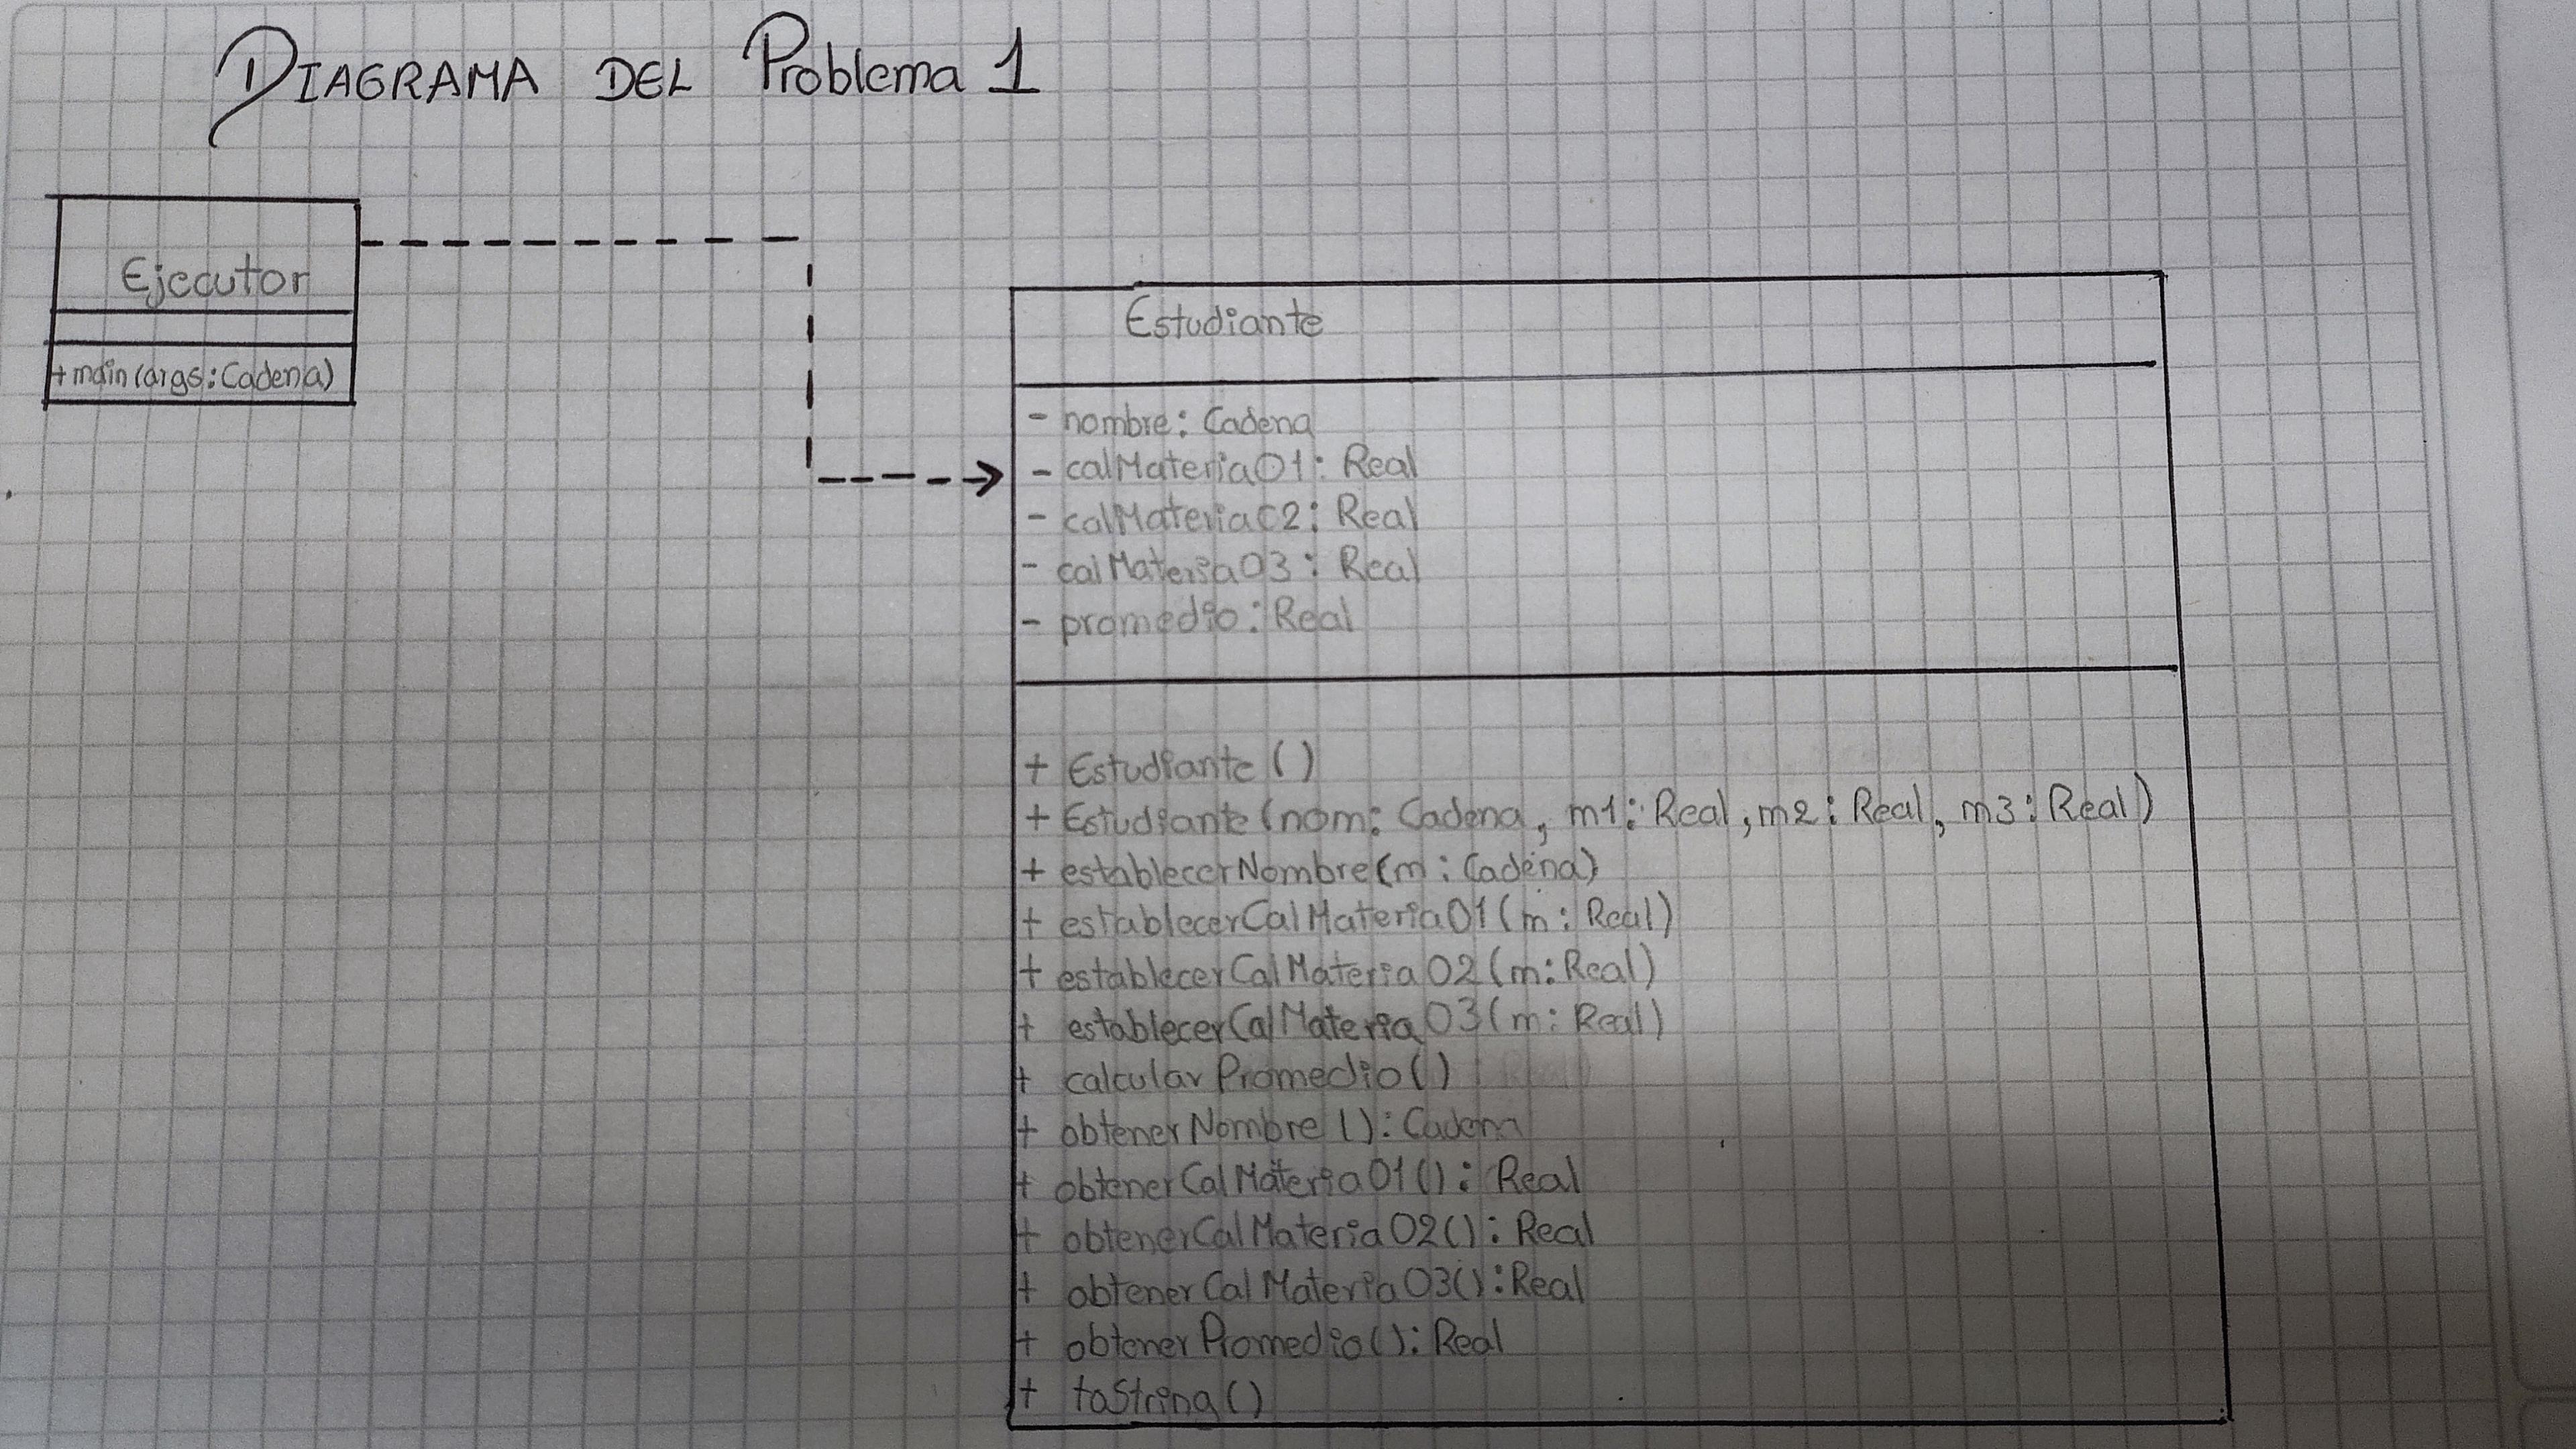 DIAGRAMA DEL Problema 1
Ejecutor
+ main (args: Cadena)
Estudiante
- nombre: Cadena
- calMateria01: Real
- calMateria02: Real
- calMateria03: Real
- promedio: Real
+ Estudiante ()
+ Estudiante (nom: Cadena, m1: Real, m2: Real, m3: Real)
+ establecerNombre(m: Cadena)
+ establecerCalMateria01(m: Real)
+ establecerCalMateria02(m: Real)
+ establecerCalMateria03(m: Real)
+ calcularPromedio()
+ obtenerNombre(): Cadena
+ obtenerCalMateria01(): Real
+ obtenerCalMateria02(): Real
+ obtenerCalMateria03(): Real
+ obtenerPromedio(): Real
+ toString()